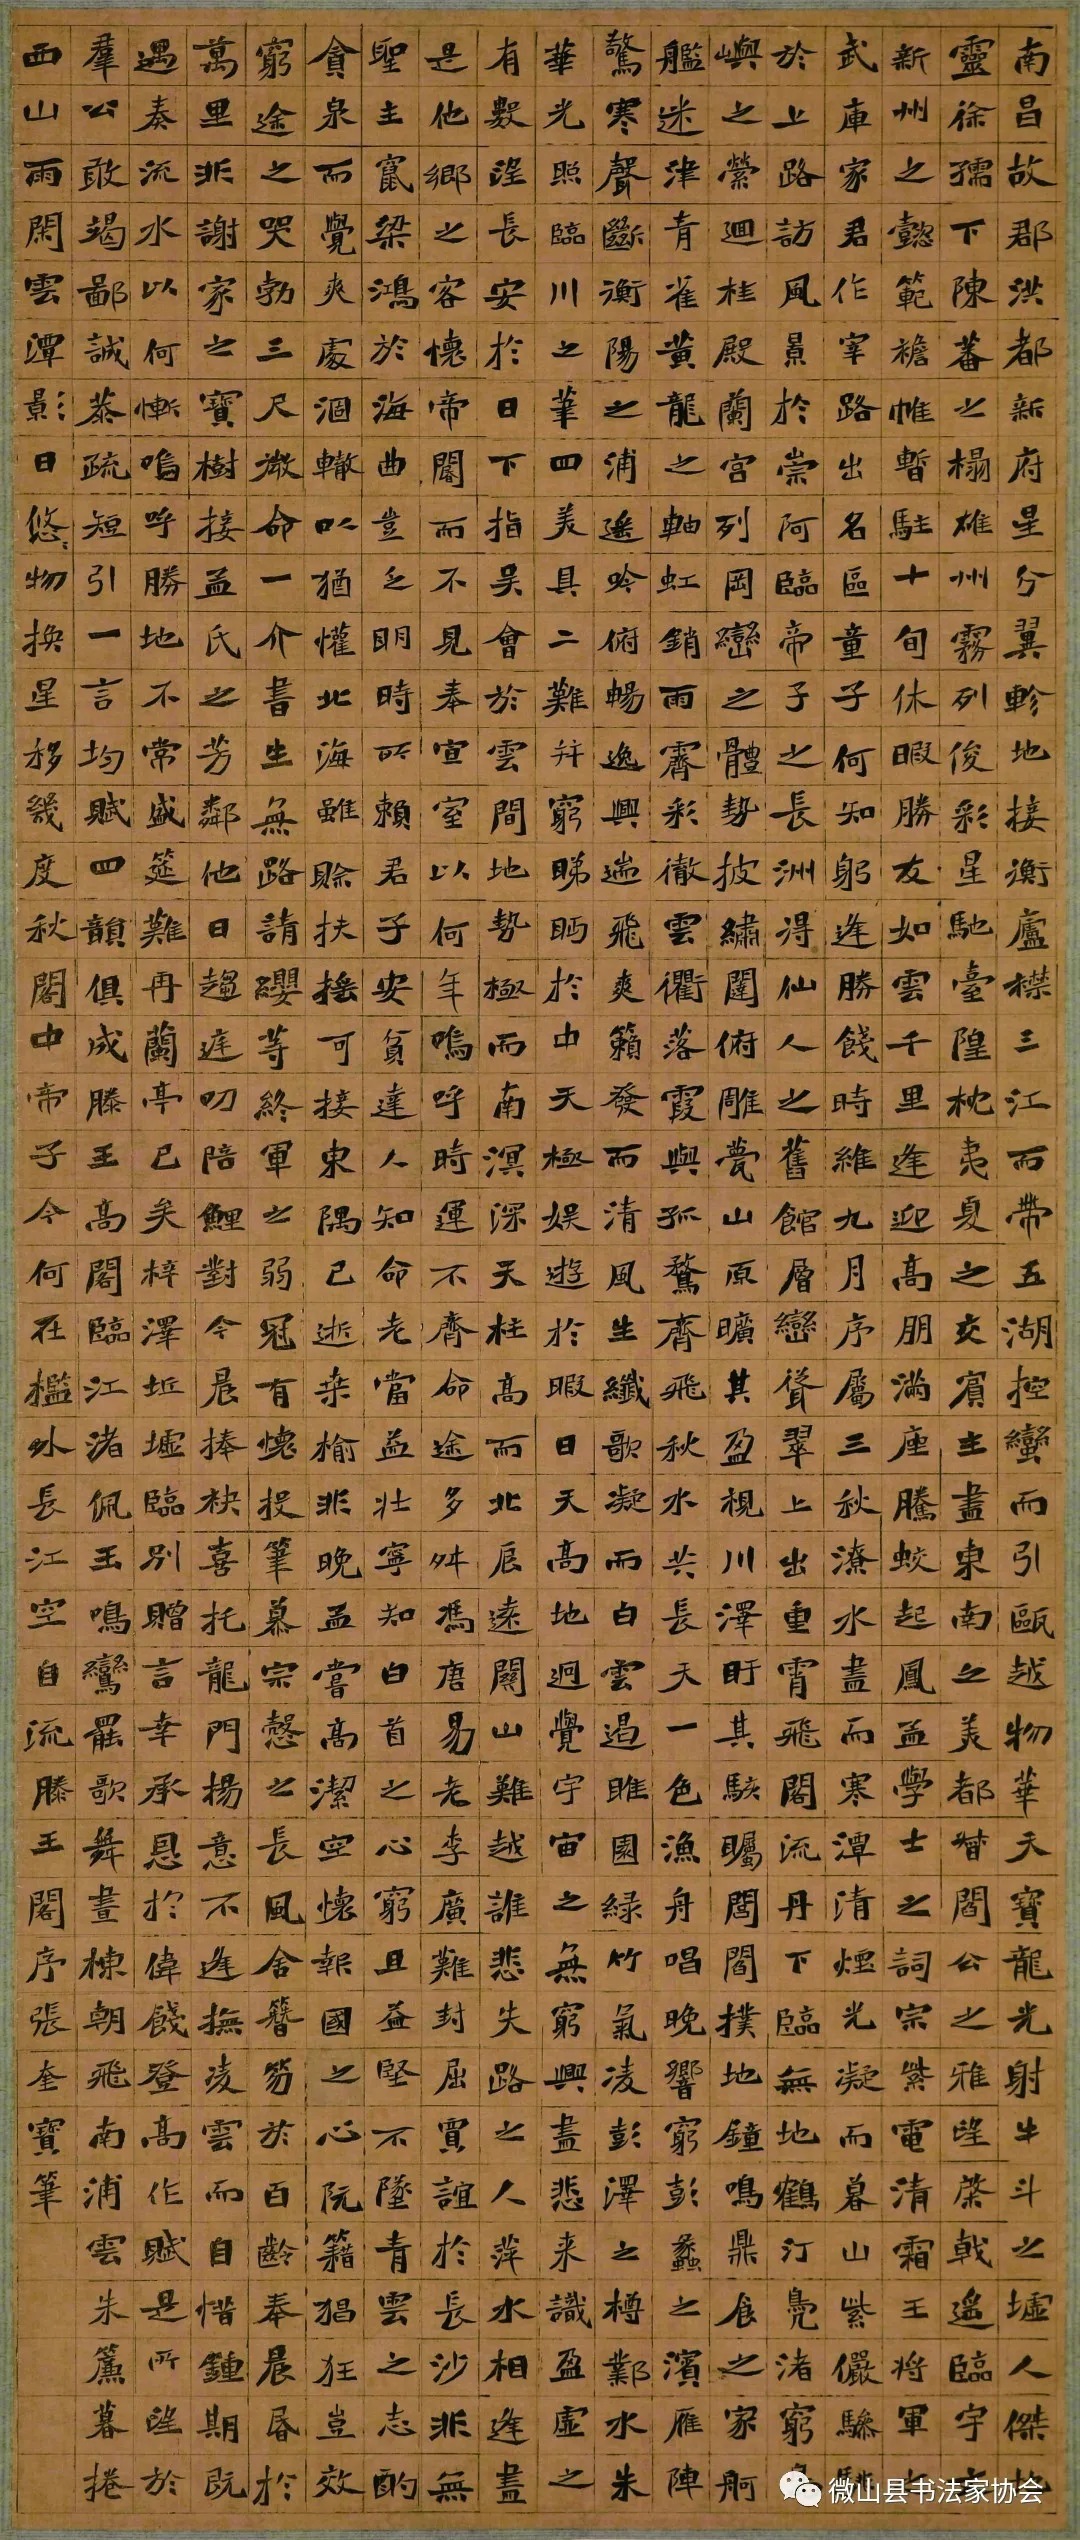 南昌故郡洪都新府星分翼軫地接衡廬襟三江而帶五湖控蠻而引甌越物華天寶龍光射牛斗之墟人傑地
靈徐孺下陳蕃之榻雄州霧列俊彩星馳臺隍枕夷夏之交賓主盡東南之美都督閻公之雅望棨戟遙臨宇
新州之懿範襜帷暫駐十旬休暇勝友如雲千里逢迎高朋滿座騰蛟起鳳孟學士之詞宗紫電清霜王將軍
武庫家君作宰路出名區童子何知躬逢勝餞時維九月序屬三秋潦水盡而寒潭清煙光凝而暮山紫儼驂騑
於上路訪風景於崇阿臨帝子之長洲得仙人之舊館層巒聳翠上出重霄飛閣流丹下臨無地鶴汀鳧渚窮島
嶼之縈迴桂殿蘭宮列岡巒之體勢披繡闥俯雕甍山原曠其盈視川澤盱其駭矚閭閻撲地鐘鳴鼎食之家舸
艦迷津青雀黃龍之軸虹銷雨霽彩徹雲衢落霞與孤鶩齊飛秋水共長天一色漁舟唱晚響窮彭蠡之濱雁陣
驚寒聲斷衡陽之浦遙吟俯暢逸興遄飛爽籟發而清風生纖歌凝而白雲遏睢園綠竹氣凌彭澤之樽鄴水朱
華光照臨川之筆四美具二難并窮睇眄於中天極娛遊於暇日天高地迥覺宇宙之無窮興盡悲來識盈虛之
有數望長安於日下指吳會於雲間地勢極而南溟深天柱高而北辰遠關山難越誰悲失路之人萍水相逢盡
是他鄉之客懷帝閽而不見奉宣室以何年嗚呼時運不齊命途多舛馮唐易老李廣難封屈賈誼於長沙非無
聖主竄梁鴻於海曲豈乏明時所賴君子安貧達人知命老當益壯寧知白首之心窮且益堅不墜青雲之志酌
貪泉而覺爽處涸轍以猶懽北海雖賒扶搖可接東隅已逝桑榆非晚孟嘗高潔空懷報國之心阮籍猖狂豈效
窮途之哭勃三尺微命一介書生無路請纓等終軍之弱冠有懷投筆慕宗愨之長風舍簪笏於百齡奉晨昏於
萬里非謝家之寶樹接孟氏之芳鄰他日趨庭叨陪鯉對今晨捧袂喜托龍門楊意不逢撫凌雲而自惜鍾期既
遇奏流水以何慚嗚呼勝地不常盛筵難再蘭亭已矣梓澤丘墟臨別贈言幸承恩於偉餞登高作賦是所望於
羣公敢竭鄙誠恭疏短引一言均賦四韻俱成滕王高閣臨江渚佩玉鳴鸞罷歌舞畫棟朝飛南浦雲朱簾暮捲
西山雨閑雲潭影日悠悠物換星移幾度秋閣中帝子今何在檻外長江空自流滕王閣序張奎寶筆
微山县书法家协会